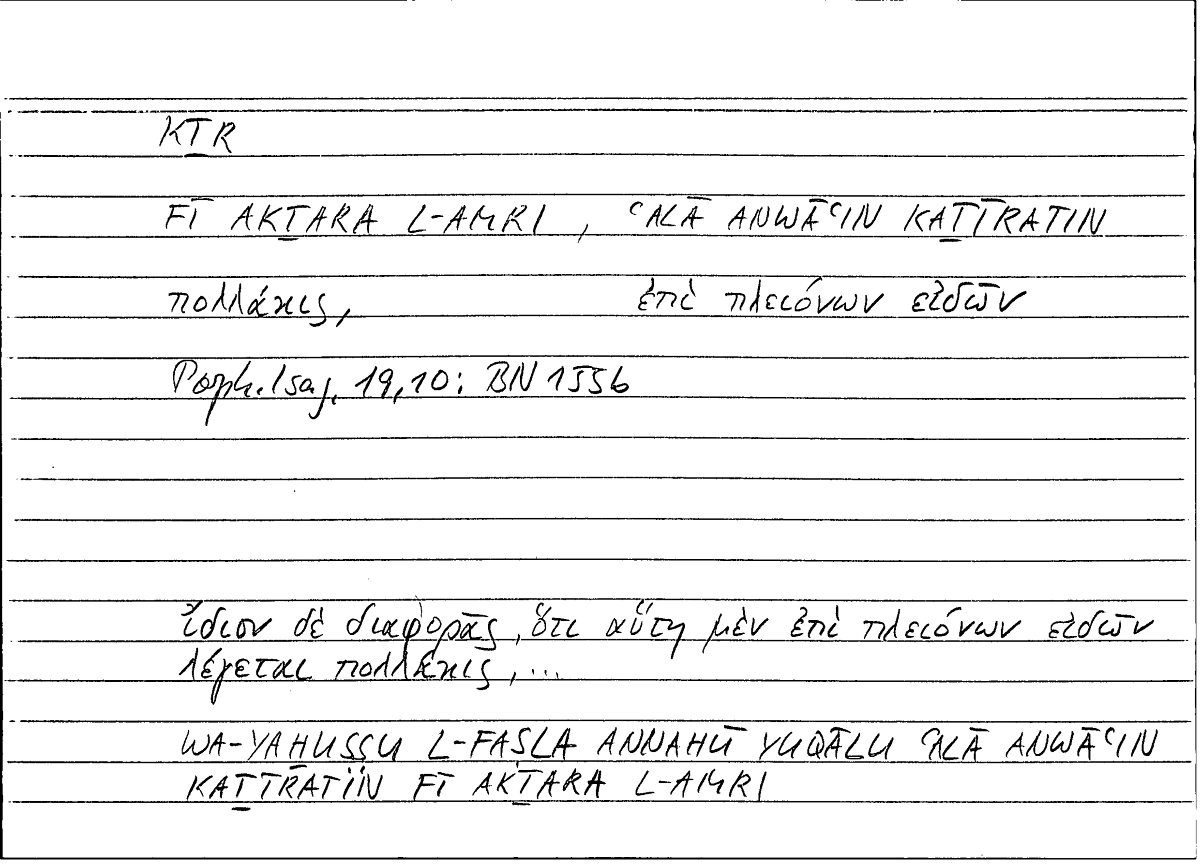 KṮR
FĪ AKṮARA L-AMRI , ʿALĀ ANWĀʿIN KAṮĪRATIN
πολλάκις, ἐπὶ πλειόνων εἰδῶν
Porph. Isag. 19,10: BN 155b
ἴδιον δὲ διαφορᾶς, ὅτι αὕτη μὲν ἐπὶ πλειόνων εἰδῶν
λέγεται πολλάκις, ...
WA-YAḪUṢṢU L-FAṢLA ANNAHŪ YUQĀLU ʿALĀ ANWĀʿIN
KAṮĪRATIN FĪ AKṮARA L-AMRI